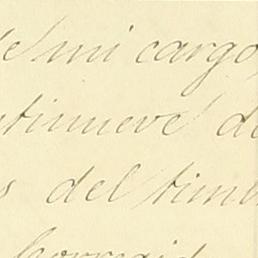 de mi cargo,
ntinueve de
s del timb